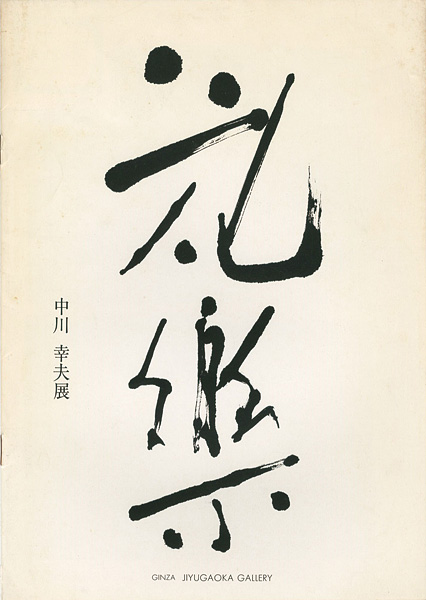 花樂
中川 幸夫展
GINZA JIYUGAOKA GALLERY